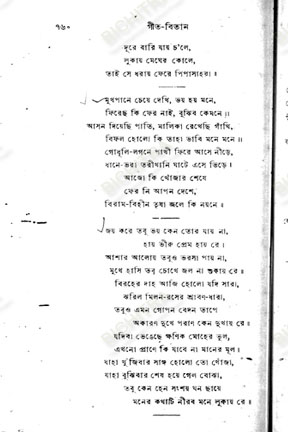 ৭৬০ গীত-বিতান
দূরে বারি যায় চ'লে,
লুকায় মেঘের কোলে,
তাই সে ধরায় ফেরে পিপাসাহরা ॥
মুখপানে চেয়ে দেখি, ভয় হয় মনে,
ফিরেছ কি ফের নাই, বুঝিব কেমনে ॥
আসন দিয়েছি পাতি, মালিকা রেখেছি গাঁথি,
বিফল হোলো কি তাহা ভাবি মনে মনে ॥
গোধূলি-লগনে পাখী ফিরে আসে নীড়ে,
ধানে-ভরা তরীখানি ঘাটে এসে ভিড়ে।
আজো কি খোঁজার শেষে
ফের নি আপন দেশে,
বিরাম-বিহীন তৃষা জলে কি নয়নে ॥
জয় করে তবু ভয় কেন তোর যায় না,
হায় ভীরু প্রেম হায় রে।
আশার আলোয় তবুও ভরসা পায় না,
মুখে হাসি তবু চোখে জল না শুকায় রে॥
বিরহের দাহ আজি হোলো যদি সারা,
ঝরিল মিলন-রসের শ্রাবণ-ধারা,
তবুও এমন গোপন বেদন তাপে
অকারণ দুখে পরাণ কেন দুখায় রে॥
যদিবা ভেঙেছে ক্ষণিক মোহের ভুল,
এখনো প্রাণে কি যাবে না মানের মূল।
যাহা খুঁজিবার সাঙ্গ হোলো তো খোঁজা,
যাহা বুঝিবার শেষ হয়ে গেল বোঝা,
তবু কেন হেন সংশয় ঘন ছায়ে
মনের কথাটি নীরব মনে লুকায় রে॥